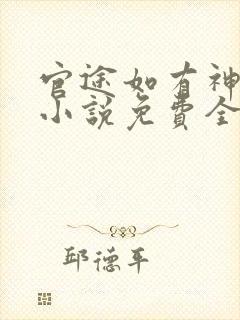 官途如有神
小說免費全
邱德平